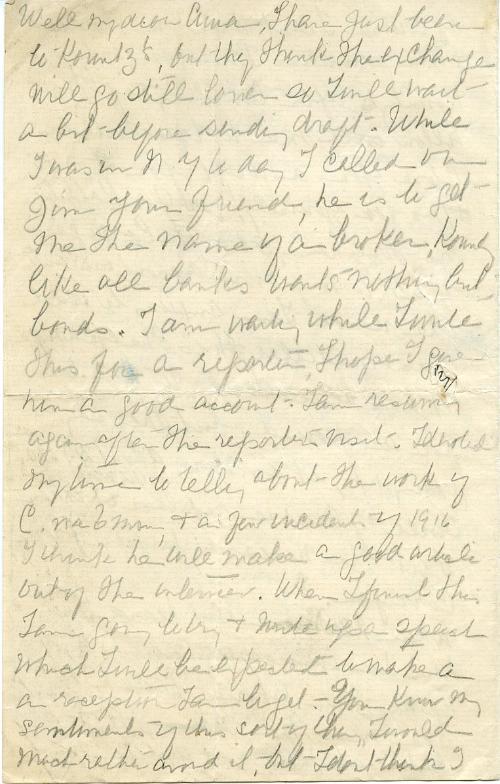 Well my dear Anna, I have just been
to Kountz's, but they think the exchange
will go still lower so I will wait
a bit before sending draft. While
I was in N Y to day I called on
Jim your friend, he is to get
me the name of a broker, Kountz
like all banks wants nothing but
bonds. I am waiting while I write
this for a reporter, I hope I give
him a good account. I am resuming
again after the reporters visit. I devoted
my time to telling about the work of
C. & a few incidents of 1916
I think he will make a good article
out of the interview. When I finish this
I am going to try & write up a speech
which I will be expected to make a
a reception I am to get. You know my
sentiments of this sort of thing, I would
much rather avoid it, but I dont think I